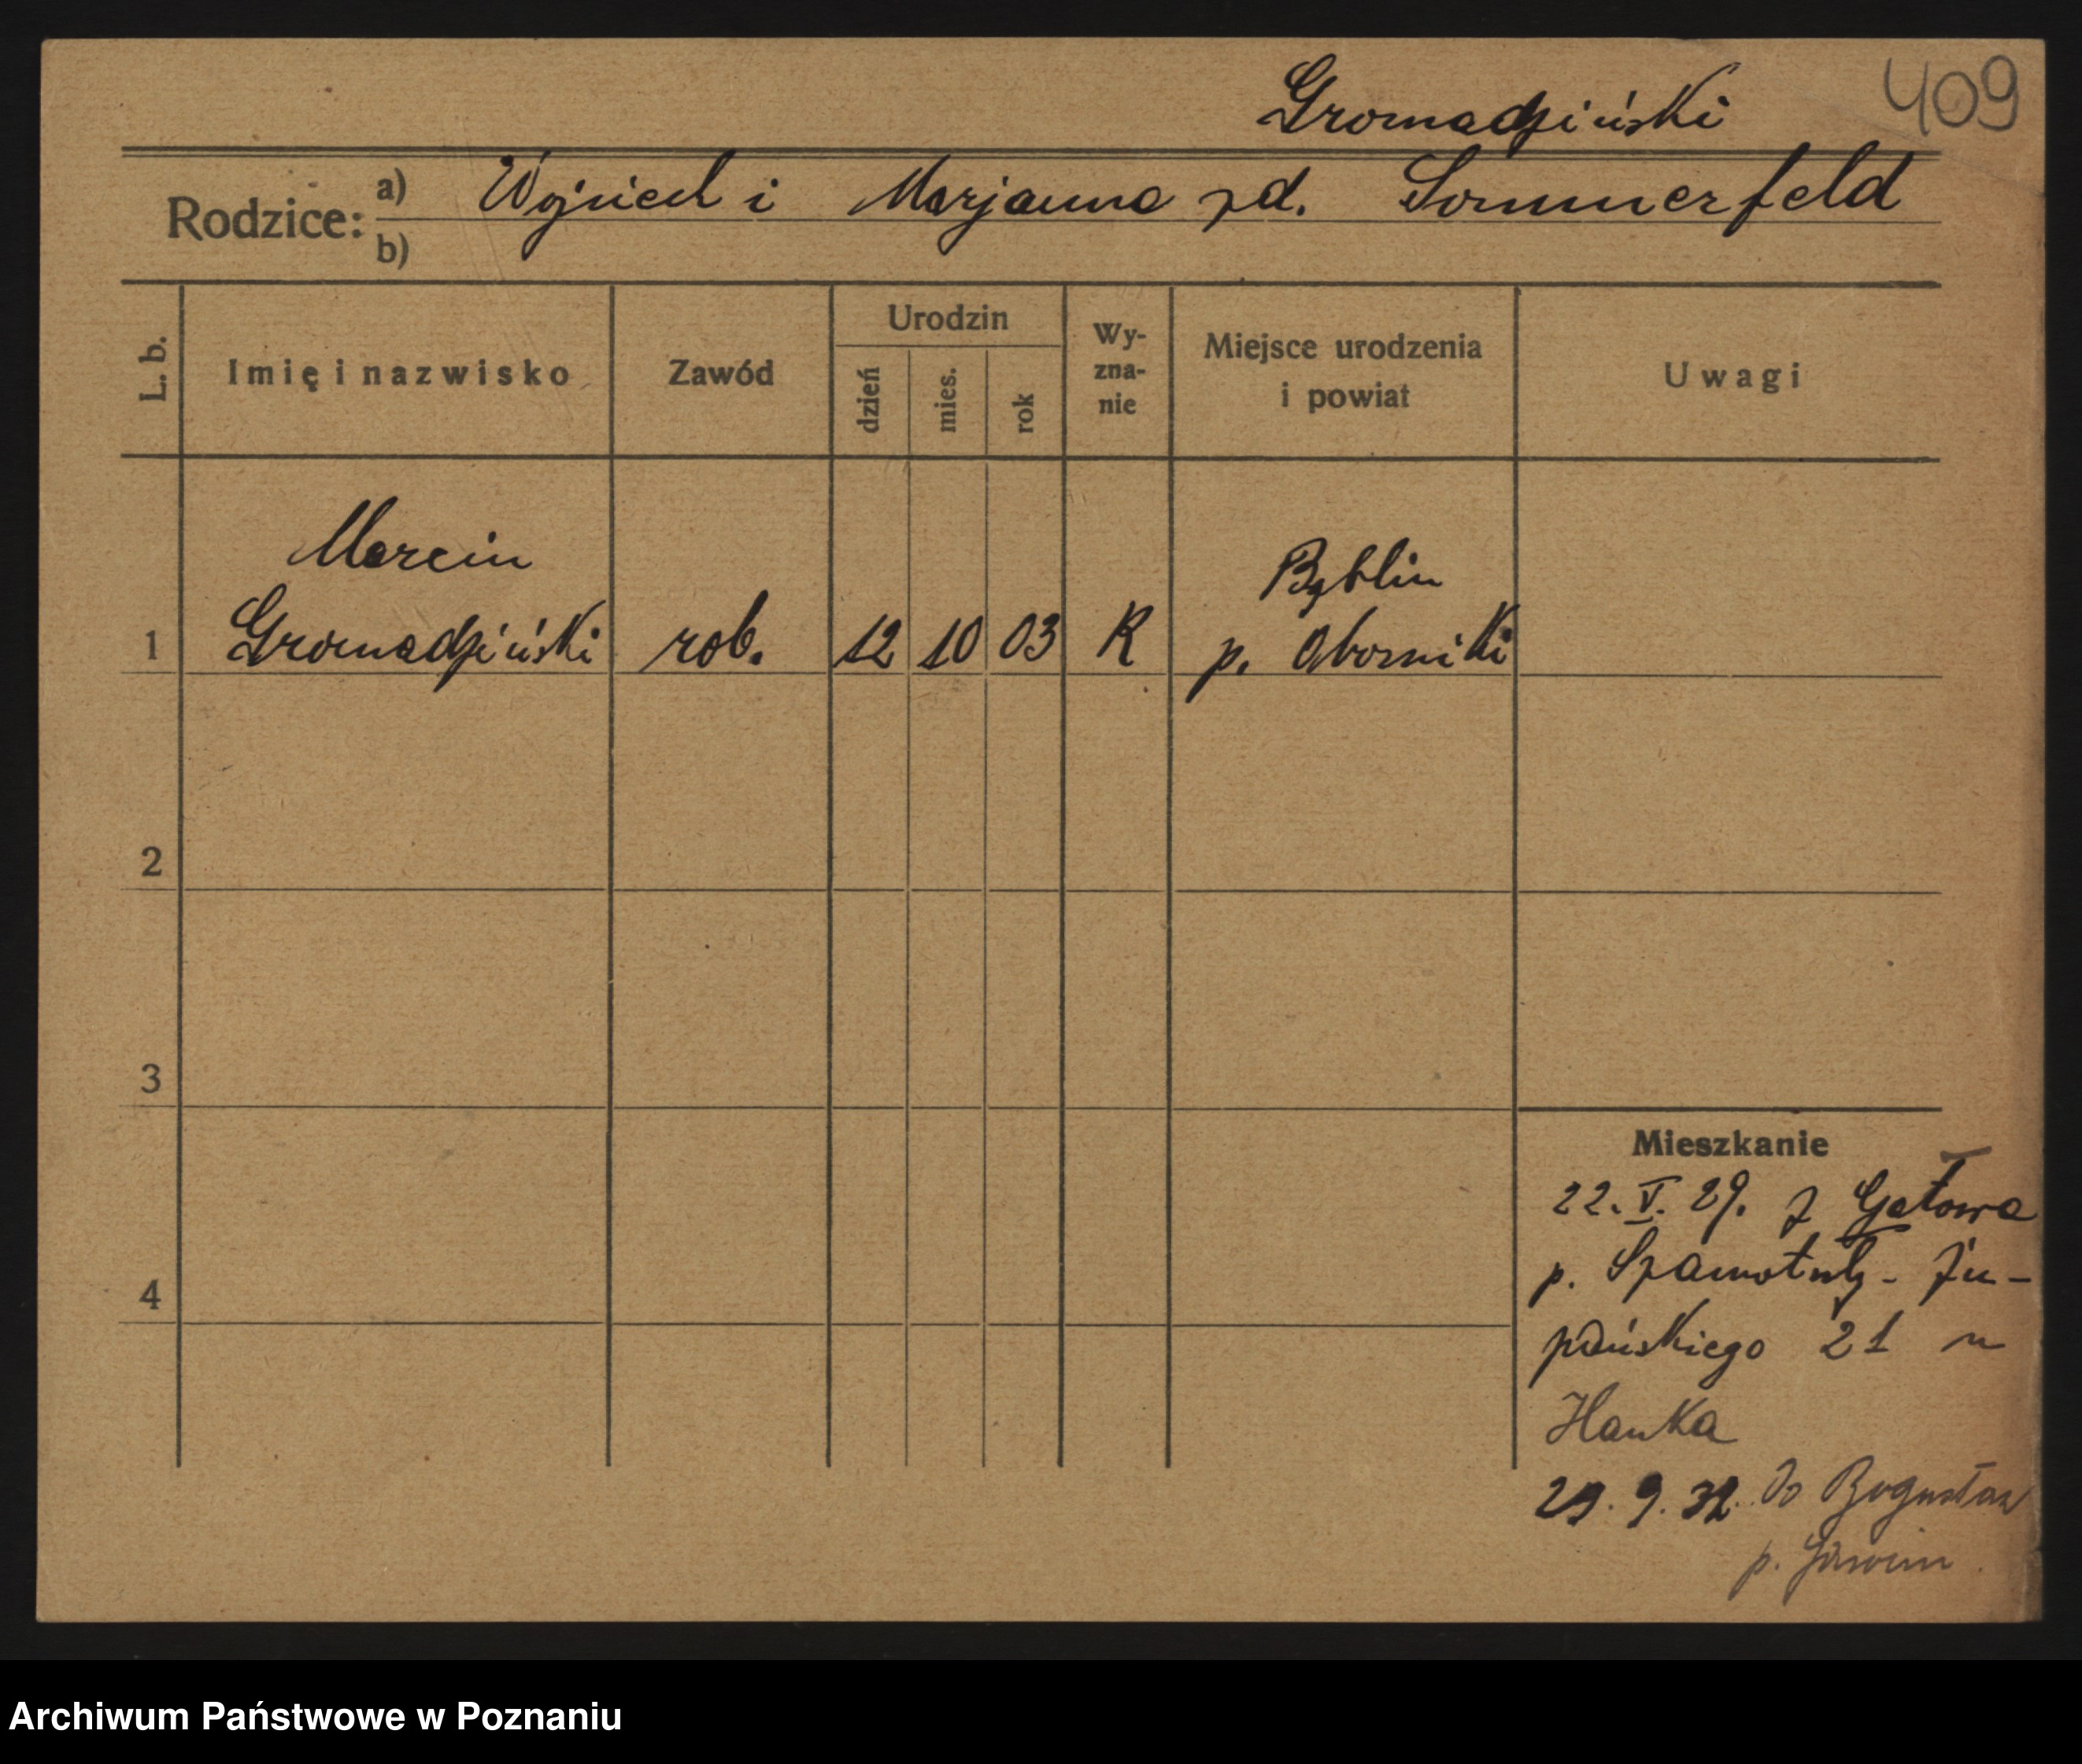 409
Gromadziński
Rodzice: a) Wojciech i Marjanna zd. Sommerfeld
b)
L. b. Imię i nazwisko Zawód Urodzin dzień mies. rok Wy-zna-nie Miejsce urodzenia i powiat Uwagi
Marcin Bąblin
1 Gromadziński rob. 12 10 03 K p. Oborniki
2
3
4
Mieszkanie
22. V. 29. z Gałowa
p. Szamotuły - Żu-
pańskiego 21 u
Hanka
9. 32. do Bogusław
p.
Archiwum Państwowe w Poznaniu